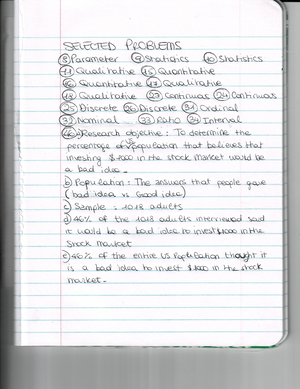 SELECTED PROBLEMS
⑧Parameter ⑨Statistics ⑩Statistics
⑪Qualitative ⑮Quantitative
⑯Quantitative ⑰Qualitative
⑱Qualitative ㉓Continuos ㉔Continuos
㉕Discrete ㉖Discrete ㉛Ordinal
㉜Nominal ㉝Ratio ㉞Interval
a) Research objective: To determine the
percentage of US population that believes that
investing $1000 in the stock market would be
a bad idea.
b) Population: The answers that people gave
(bad idea vs Good idea)
c) Sample = 1018 adults
d) 46% of the 1018 adults interviewed said
it would be a bad idea to invest $1000 in the
stock market
e) 46% of the entire US Population thought it
is a bad idea to invest $1000 in the stock
market.